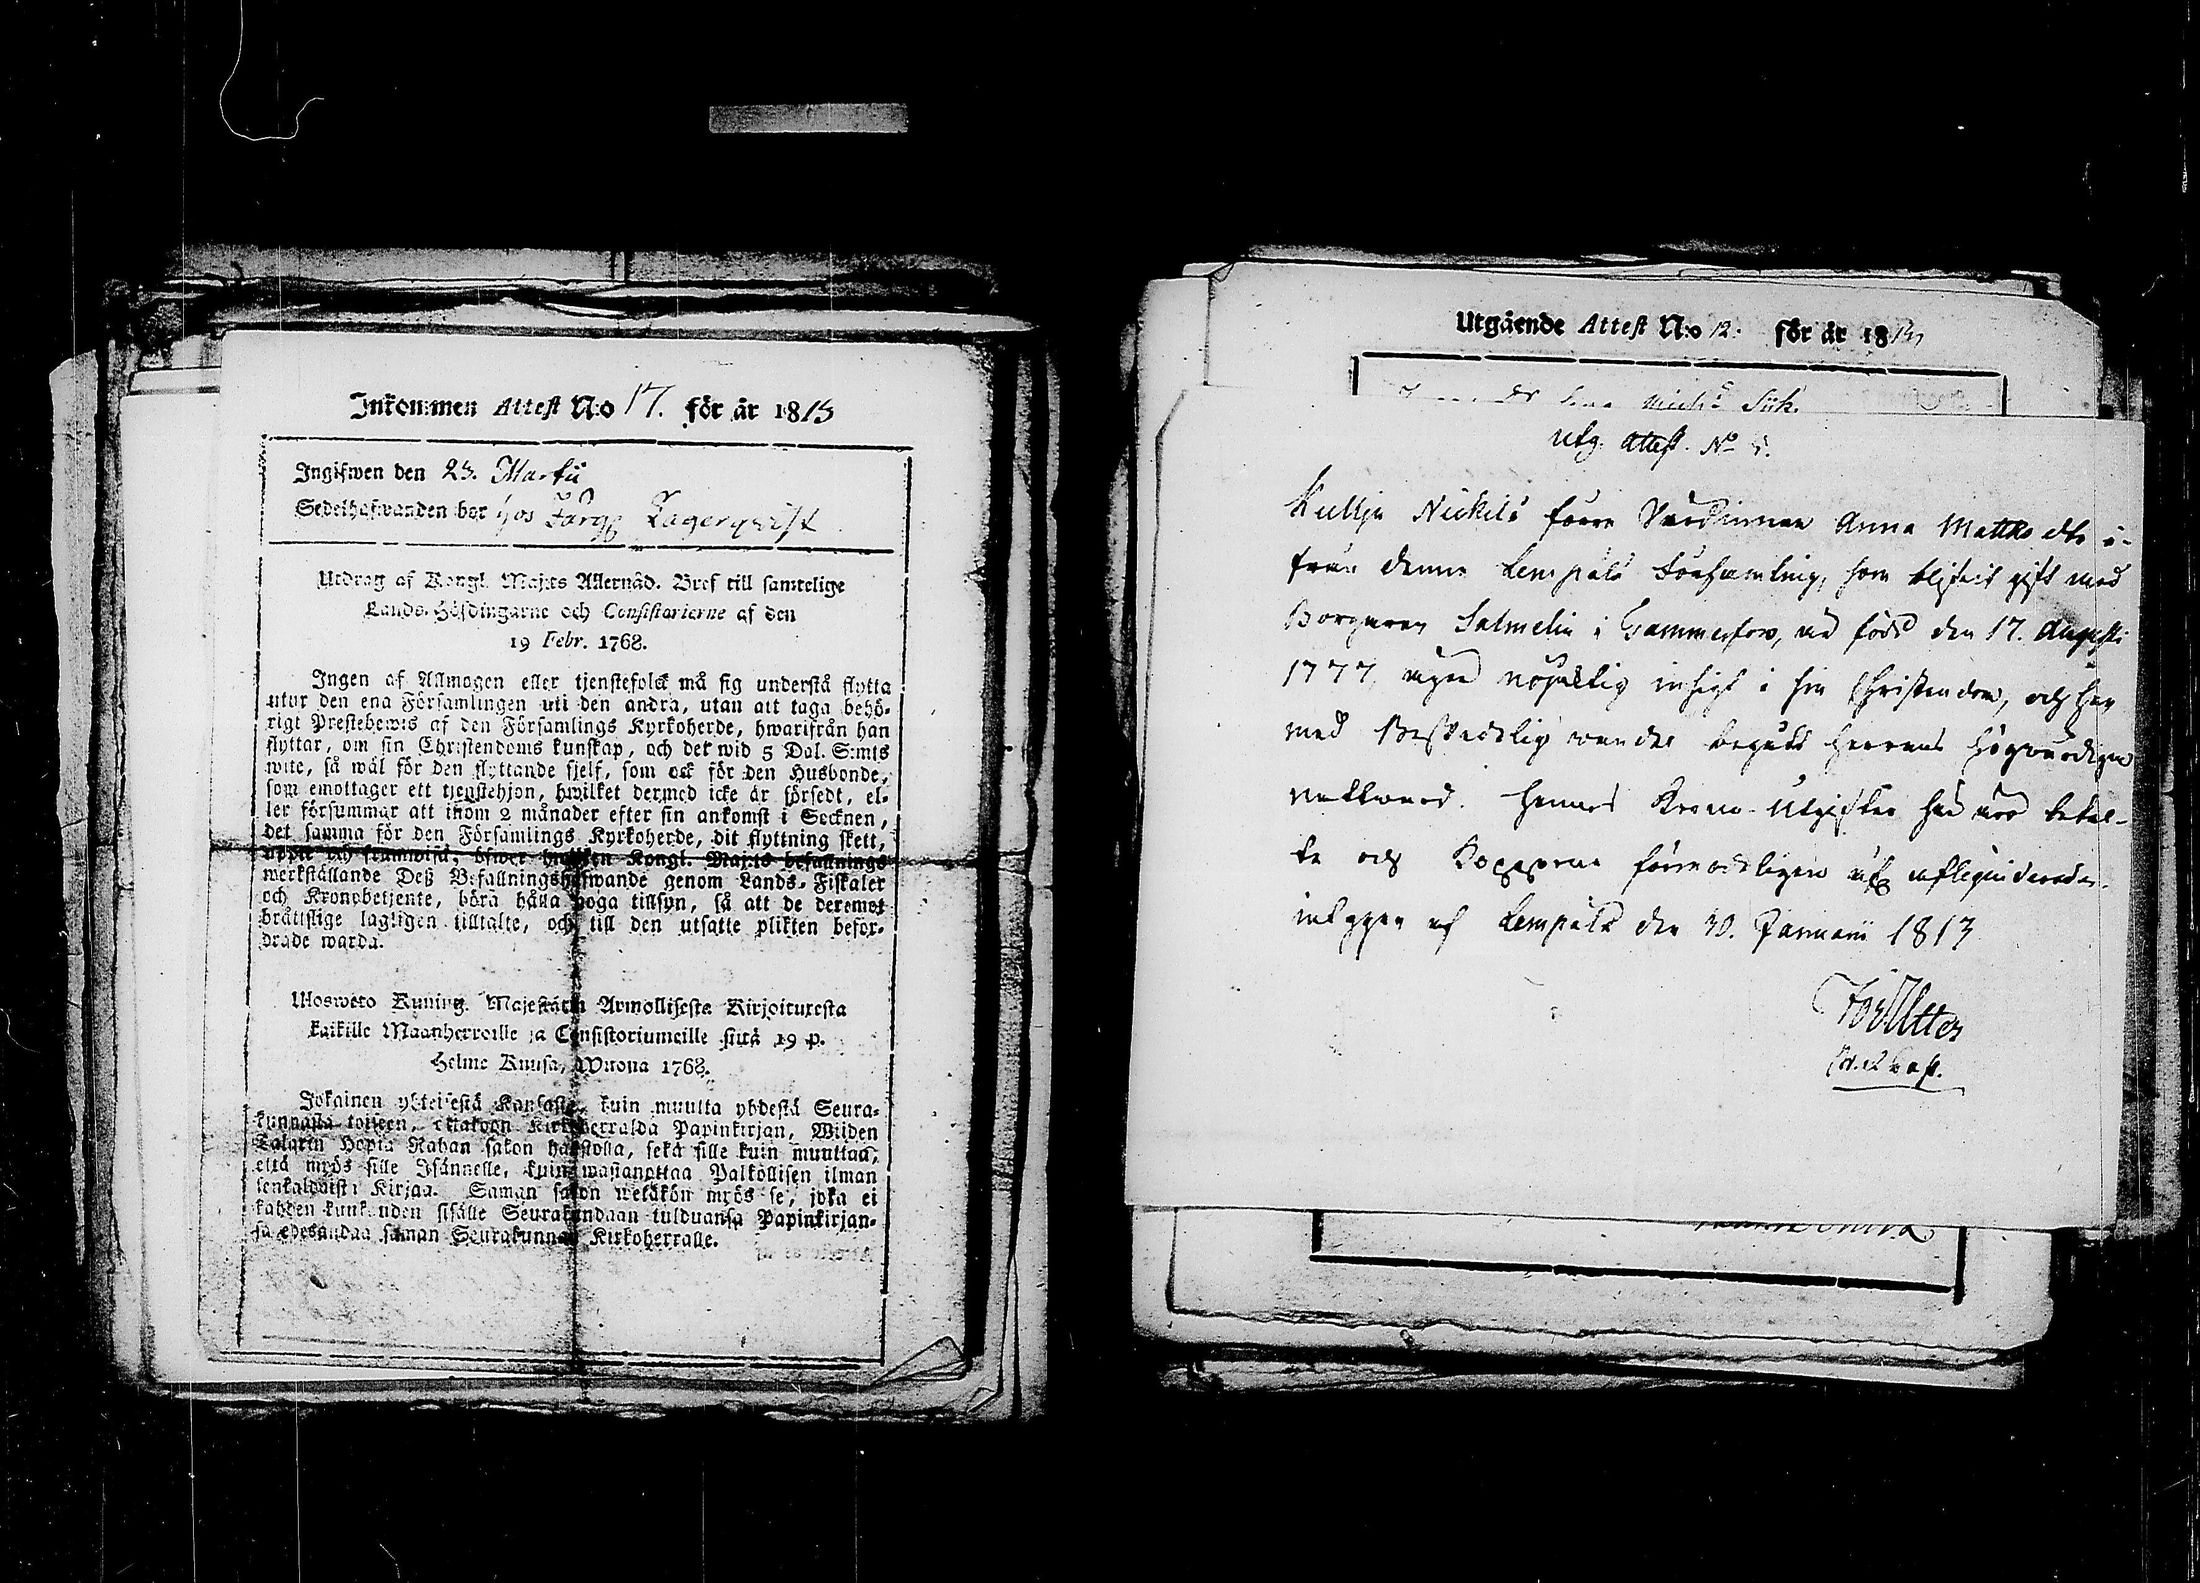 Inkommen Attest N:o 17. för år 1813
Ingifwen den 23. Martii
Sedelhafwanden bor hos Färg. Lagerqvist
Utdrag af Kongl. Maj:ts Allernåd. Bref till samtelige
Lands-Höfdingarne och Consistorierne af den
19 Febr. 1768.
Ingen af Allmogen eller tjenstefolck må sig understå flytta
utur den ena Församlingen uti den andra, utan att taga behö-
rigt Prestebewis af den Församlings Kyrkoherde, hwarifrån han
flyttar, om sin Christendoms kunskap, och det wid 5 Dal. S:mts
wite, så wäl för den flyttande sjelf, som ock för den Husbonde,
som emottager ett tjenstehjon, hwilket dermed icke är försedt, el-
ler försummar att inom 2 månader efter sin ankomst i Socknen,
det samma för den Församlings Kyrkoherde, dit flyttning skett,
uppte och framwisa; öfwer hwilken Kongl. Maj:ts befallnings
werkställande Deß Befallningshafwande genom Lands-Fiskaler
och Kronobetjente, böra hålla noga tillsyn, så att de deremot
bråttslige lagligen tilltalte, och till den utsatte plikten befor-
drade warda.
Ulosweto Kuning. Majestätin Armollisesta Kirjoituxesta
kaikille Maanherroille ja Consistoriumeille siitä 19 p.
Helme Kuusa, Wuona 1768.
Jokainen yhteisestä Kansasta, kuin muutta yhdestä Seura-
kunnasta toiseen, ottakoon Kirkkoherralda Papinkirjan, Wiiden
Talarin Hopia Rahan sakon haastolla, sekä sille kuin muuttaa,
että myös sille Isännelle, kuin wastanottaa Palkollisen ilman
senkaldaista Kirjaa. Saman sakon wetäkön myös se, joka ei
kahden kuukauden sisälle Seurakundaan tulduansa Papinkirjan-
sa edesandaa saman Seurakunnan Kirkoherralle.
Utgående Attest N:o 12. för år 1813
Mich:s
Utg. Attest. No
Kullja Nickilä förre Värdinnan Anna Matts dtr i-
från denna Lempälä Församling, som blifvit gift med
Borgaren Salmelin i Tammerfors, är född den 17. Augusti
1777, äger nöjaktig insigt i sin Christendom, och har
med Beskedlig vandel begått Herrans Högvärdiga
nattvard. Hennes Krono Utgifter har hon betal-
te och
af Lempälä den 30. Januarii 1813